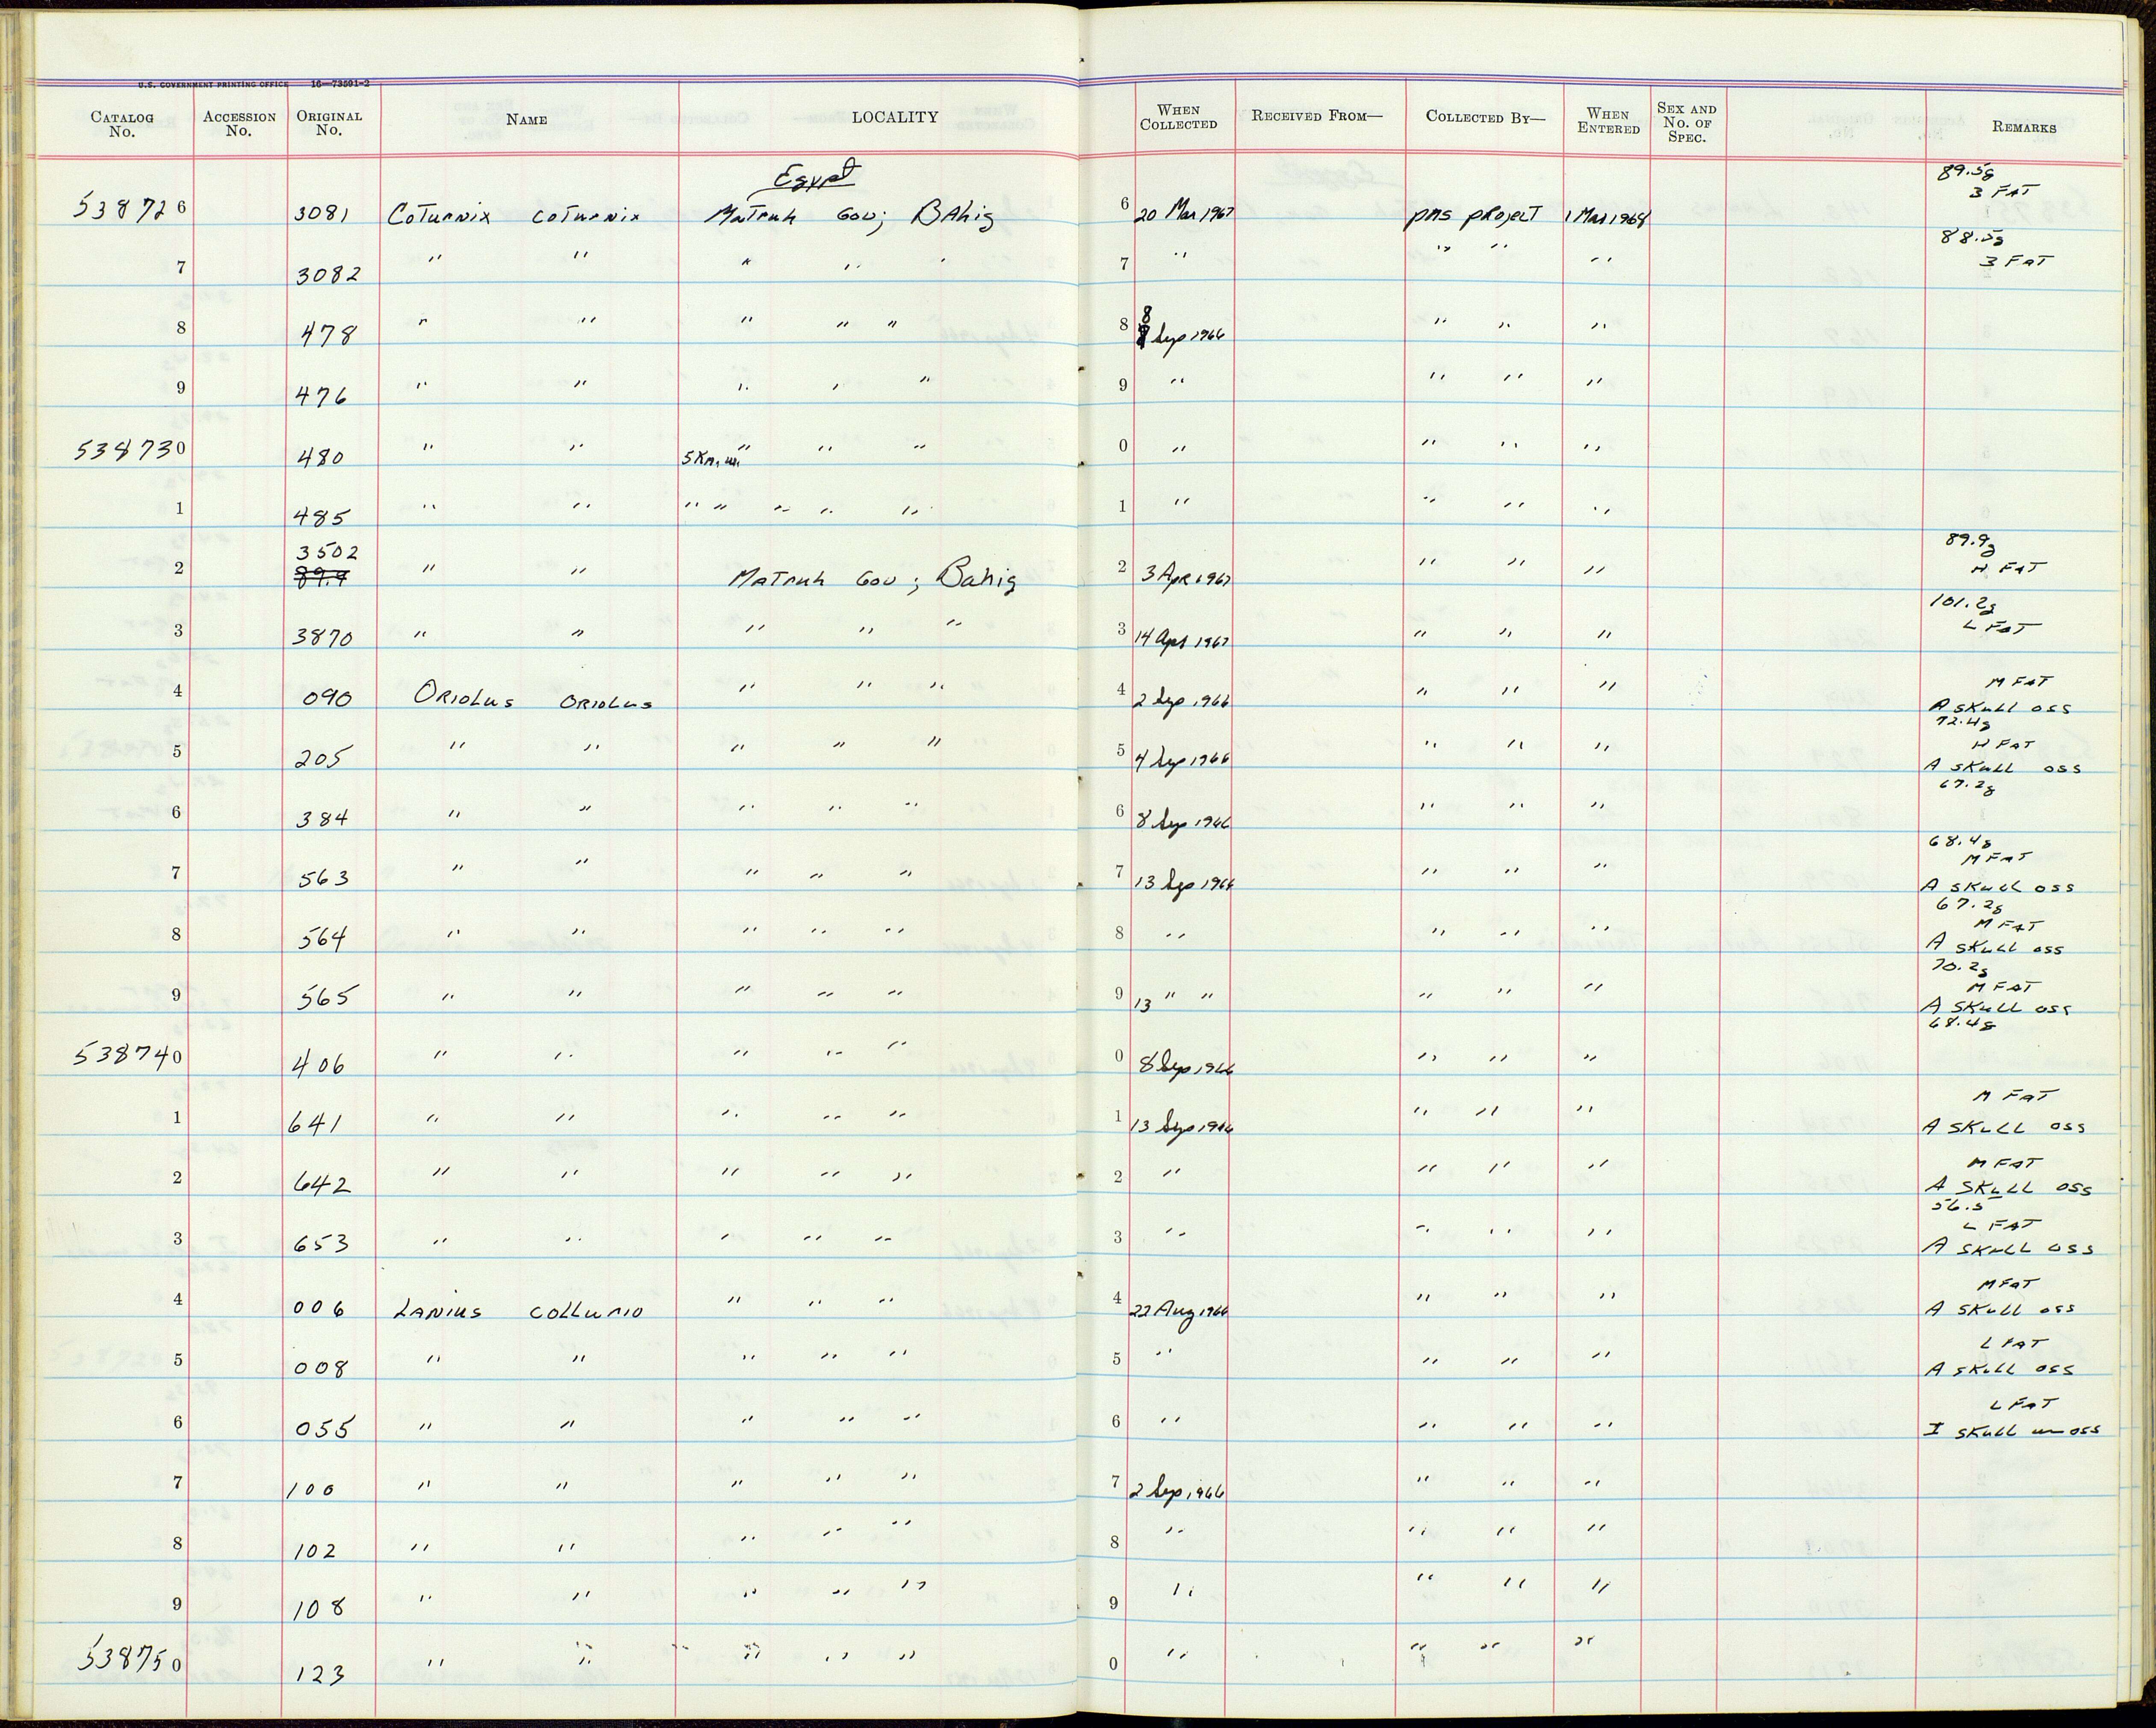 U.S. GOVERNMENT PRINTING OFFICE 16—73591-2
CATALOG No. ACCESSION No. ORIGINAL No. NAME LOCALITY WHEN COLLECTED RECEIVED FROM— COLLECTED BY— WHEN ENTERED SEX AND No. OF SPEC. REMARKS
Egypt
89.5g
538726 3081 Coturnix coturnix Matruh Gov; Bahig 6 20 Mar 1967 PMS project 1 Mar 1968 3 FAT
88.5g
7 3082 " " " " " 7 " " " " 3 FAT
8 478 " " " " " 8 8 Sep 1966 " " "
9 476 " " " " " 9 " " " "
538730 480 " " 5 Km. W. " " " 0 " " " "
1 485 " " " " " " " 1 " " " "
3502 89.9g
2 89.9 " " Matruh Gov; Bahig 2 3 Apr 1967 " " " H FAT
101.2g
3 3870 " " " " " 3 14 Apr 1967 " " " L FAT
4 090 Oriolus oriolus " " " 4 2 Sep 1966 " " " M FAT
A skull oss
72.4g
5 205 " " " " " 5 4 Sep 1966 " " " H FAT
A skull oss
67.2g
6 384 " " " " " 6 8 Sep 1966 " " "
68.4g
7 563 " " " " " 7 13 Sep 1966 " " " M FAT
A skull oss
67.2g
8 564 " " " " " 8 " " " " M FAT
A skull oss
70.2g
9 565 " " " " " 9 13 " " " " " M FAT
A skull oss
68.4g
538740 406 " " " " " 0 8 Sep 1966 " " "
1 641 " " " " " 1 13 Sep 1966 " " " M FAT
A skull oss
2 642 " " " " " 2 " " " " M FAT
A skull oss
56.5
3 653 " " " " " 3 " " " " L FAT
A skull oss
4 006 Lanius collurio " " " 4 22 Aug 1966 " " " M FAT
A skull oss
5 008 " " " " " 5 " " " " L FAT
A skull oss
6 055 " " " " " 6 " " " " L FAT
I skull un oss
7 100 " " " " " 7 2 Sep 1966 " " "
8 102 " " " " " 8 " " " "
9 108 " " " " " 9 " " " "
538750 123 " " " " " 0 " " " "